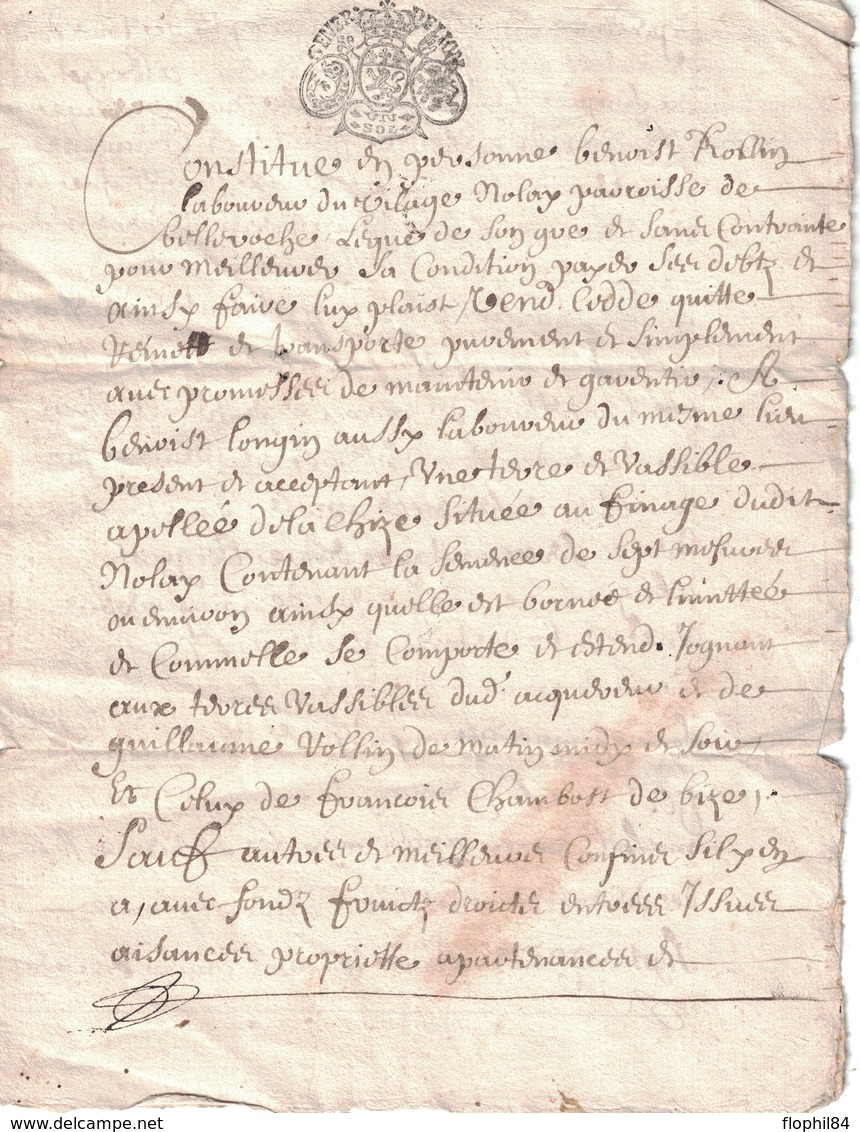 GENER DE LION
UN
SOL
Constitue en personne benoist Rollin
laboureur du vilage Nolay parroisse de
belleroche, Lequel de son gré et sans Contrainte
pour meilleurer sa Condition payer ses debtz et
ainsy faire luy plaist, Vend Cedde quitte
Remett et transporte purement et simplement
avec promesses de maintenir et garentir, A
benoist longin aussy laboureur du mesme lieu
present et acceptant, Une terre et Vassible
apellée de la Chize située au finage dudit
Nolay Contenant la semence de sept mesures
ou environ ainsy quelle est bornée et limittée
et Comme elle se Comporte et estend. Jognant
aux terres Vassibles dud acquereur et de
guillaume Vollin de matin midy et soir,
Et Celuy de francois Chambost de bize,
Sauf autres et meilleurs Confins sil y en
a, avec fondz fruictz droicts entrees Issues
aisances proprietté apartenances et
www.delcampe.net
flophil84